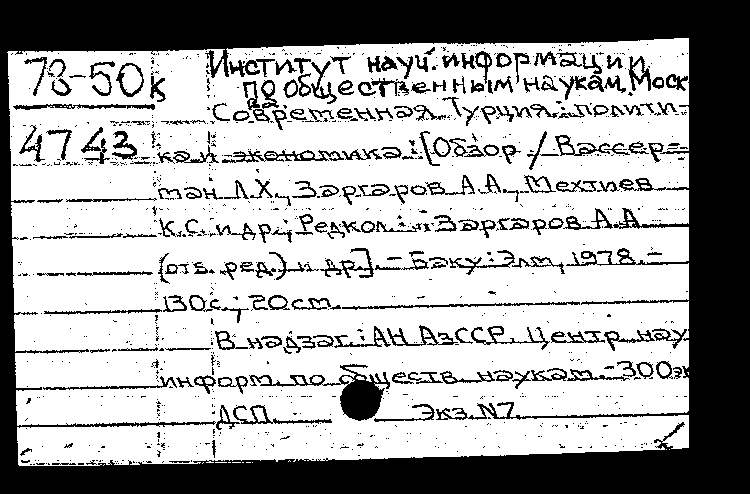 78-50к Институт науч. информации
по общественным наукам, Моск
ва
Современная Турция: полити-
4743 ка и экономика: [Обзор / Вассер-
ман Л.Х., Заргаров А.А., Мехтиев
К.С. и др.; Редкол.: Заргаров А.А
(отв. ред.) и др.]. - Баку: Элм, 1978. -
130с.; 20см.
В надзаг.: АН АзССР. Центр науч
информ. по обществ. наукам. - 300эк
ДСП. Экз. N7.